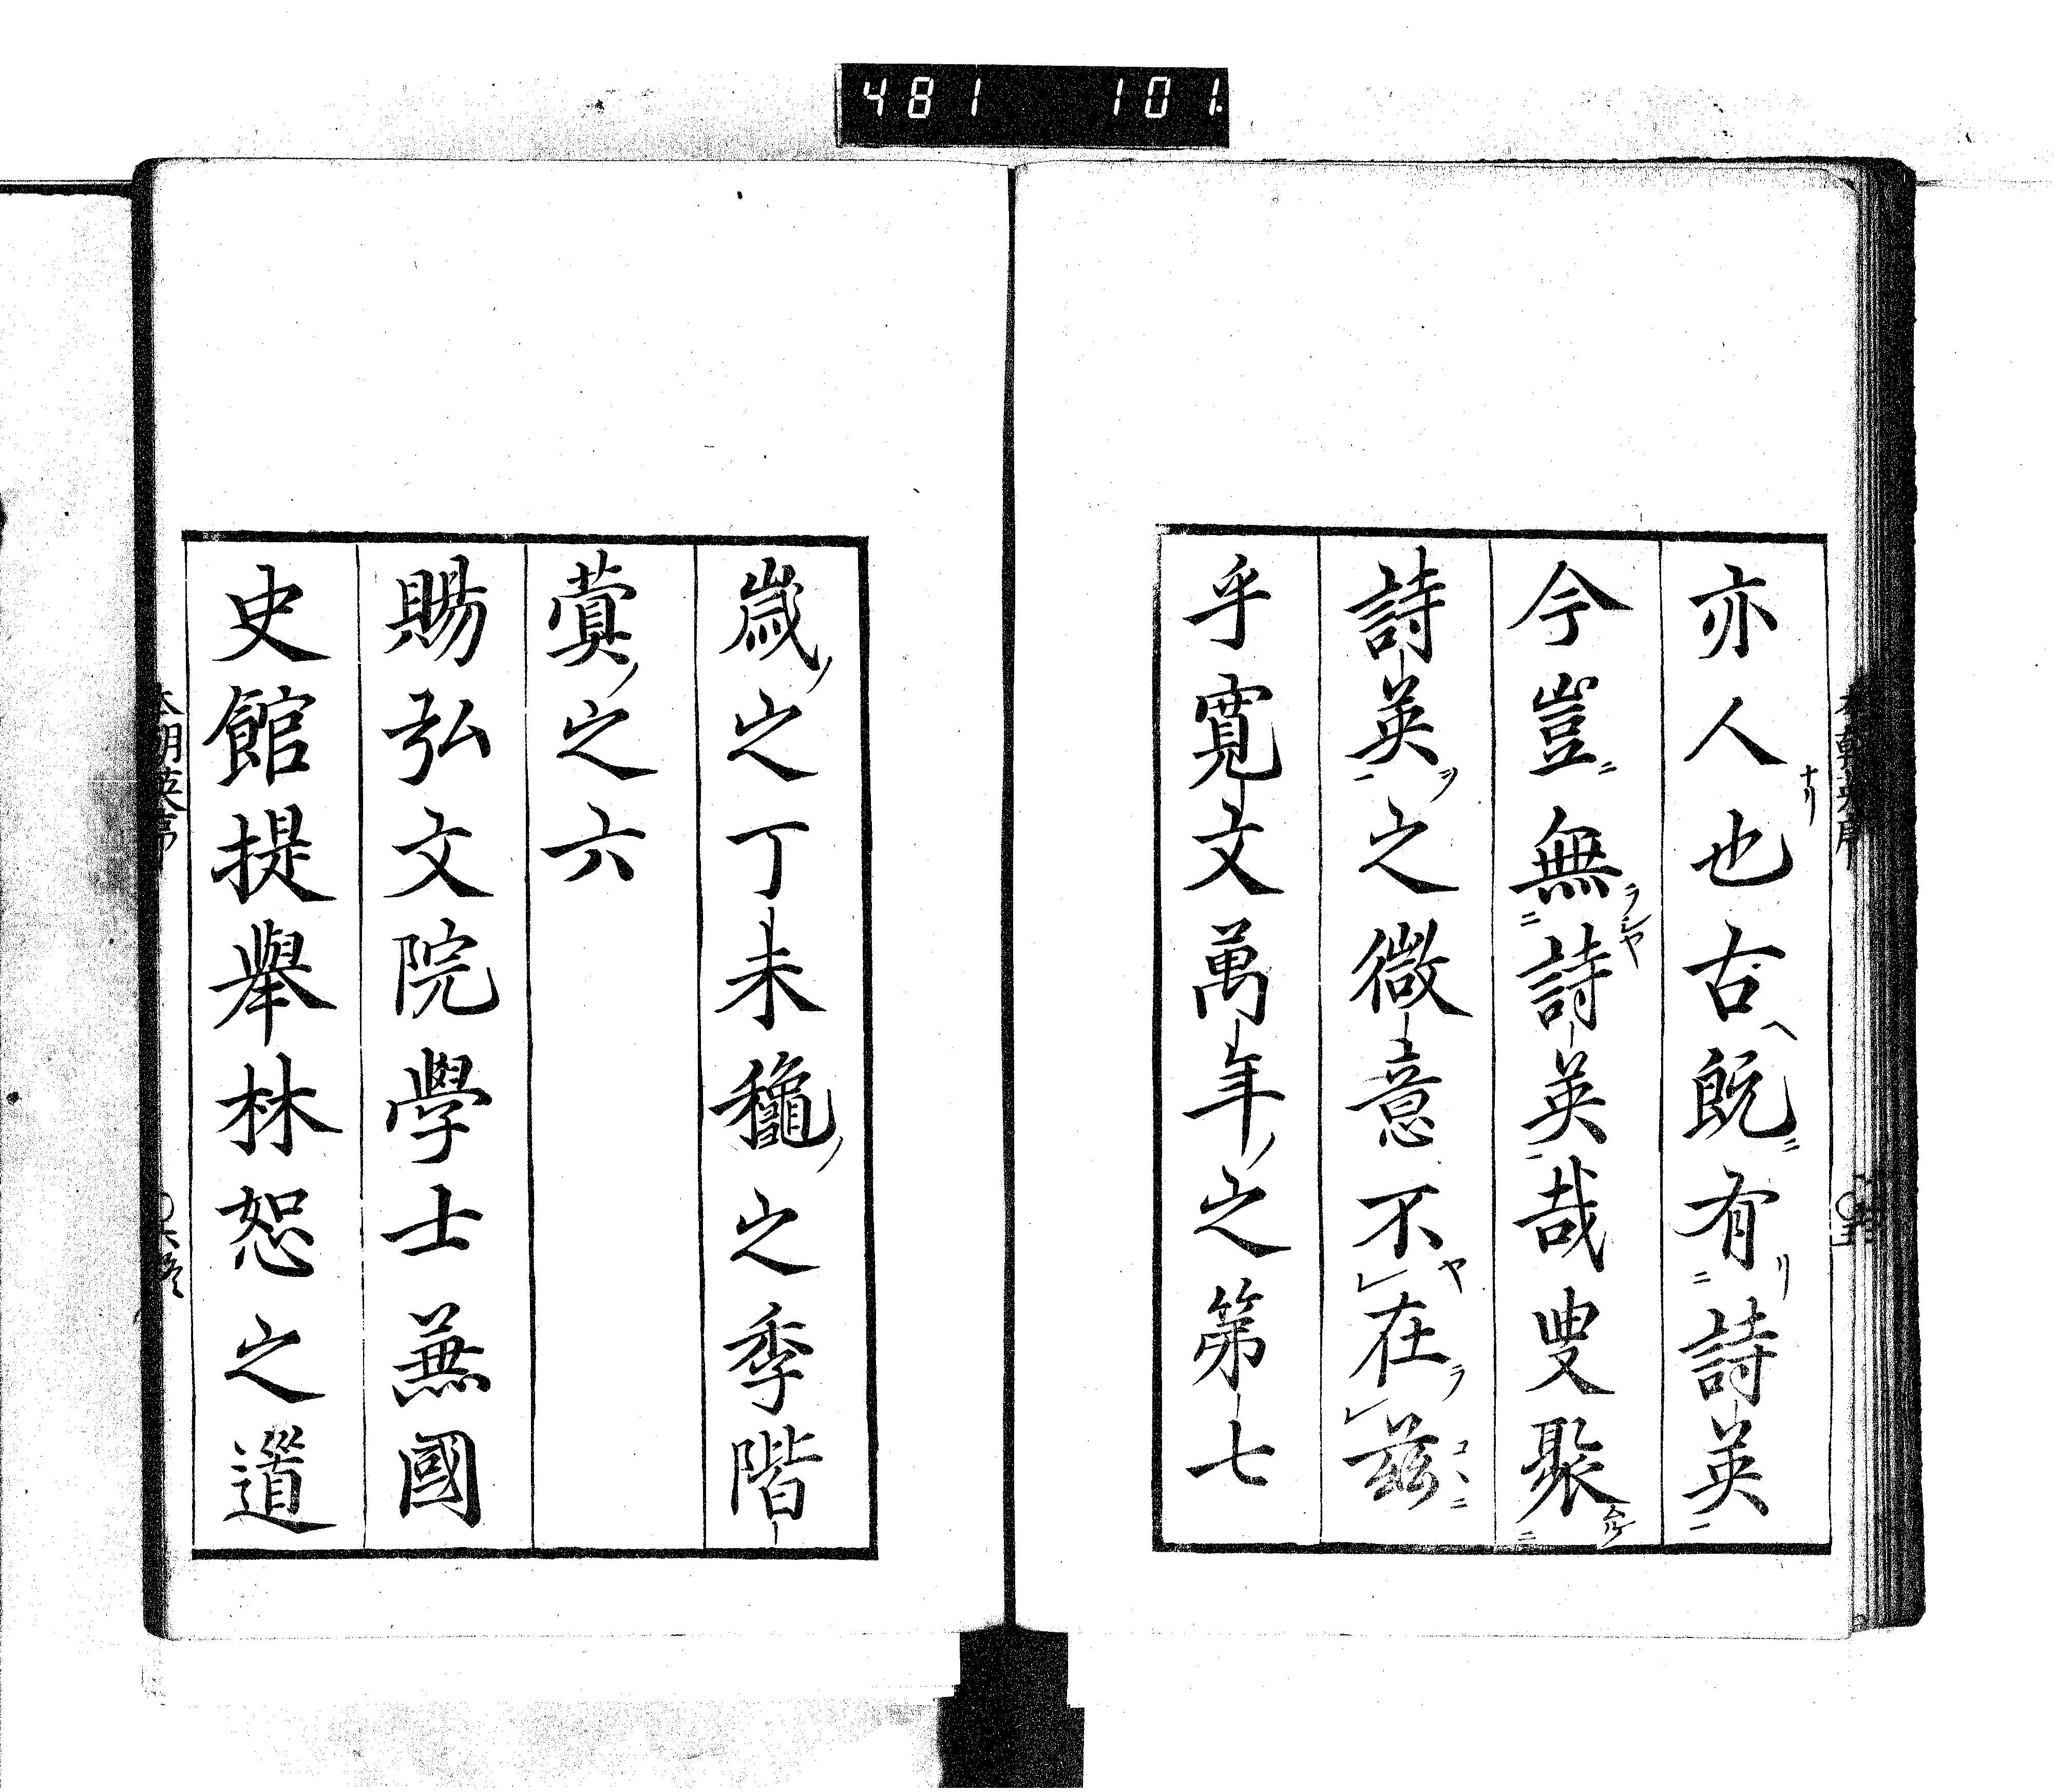 481 101.
亦人也古既有詩英
今豈無詩英哉叟聚
詩英之微意不在茲
乎寛文萬年之第七
歳之丁未龝之季階
蓂之六
賜弘文院學士兼國
史館提擧林恕之道